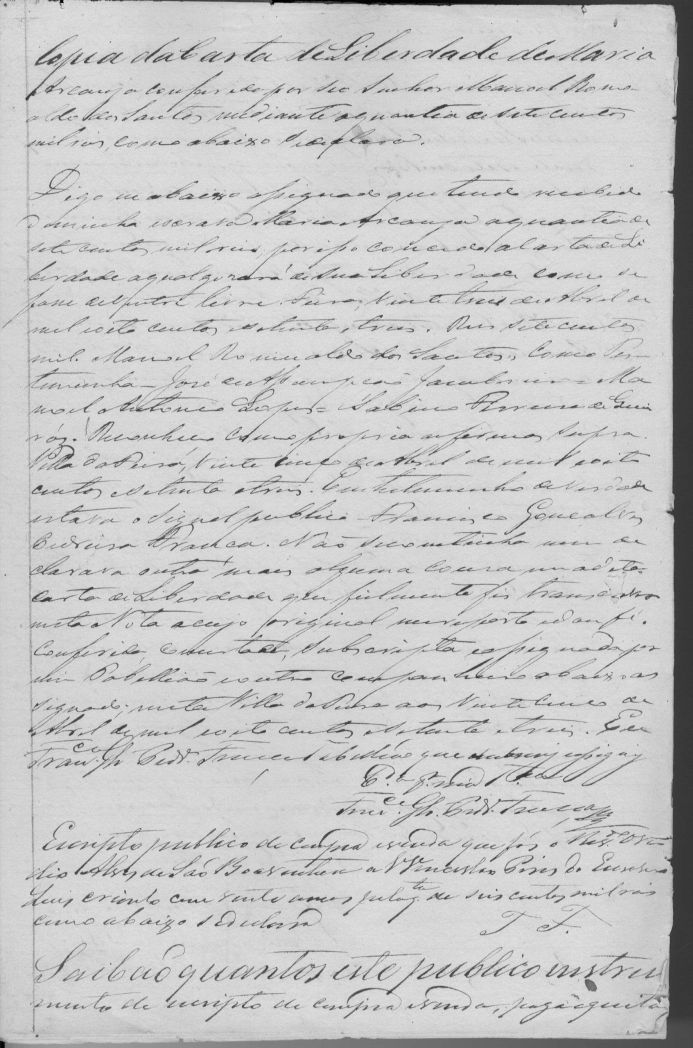 Copia da Carta de Liberdade de Maria
Arcanja conferida por seo Senhor Manoel Romu
aldo dos Santos mediante a quantia de sete centos
mil reis, como abaixo se declara.
Digo eu abaixo assignado que tendo recebido
de minha escrava Maria Arcanja a quantia de
sete centos mil reis, por isso concedo a Carta de Li
berdade a qual gozará de sua Liberdade como se
fosse de ventre livre. Vinte tres de Abril de
mil oito centos setenta e tres. Reis sete centos
mil. Manoel Romualdo dos Santos, Como Tes-
temunha = José de Assumpção = Ma
noel Antonio Lopes = Sabino Pereira de Quei
rós. Reconheço como propria as firmas supra.
Villa do , vinte cinco de Abril de mil oito
centos setenta e tres. Em testemunho de verdade
estava o signal publico Francisco Gonçalves
Pedreira França. Não se continha nem de
clarava outra mais alguma cousa na dita
carta de Liberdade que fielmente fis transcrever
nesta Nota a cujo original me reporto e dou fé.
Conferido concertado, subscripta e assignada por
mim Tabellião e outro companheiro abaixo as
signado nesta Villa do aos vinte cinco de
Abril de mil oito centos e setenta e tres. Eu
Franco. Gl. Pedra. França Tabellião que assigney
Franco. Gl. Pedra. França
Escripto publico de compra e venda que fás o
Alves de São Boaventura a Pires do
Luis crioulo com vinte annos pela qta. de seis centos mil reis
como abaixo se declara
T. F.
Saibão quantos este publico instru
mento de escripto de compra e venda, paga e quita